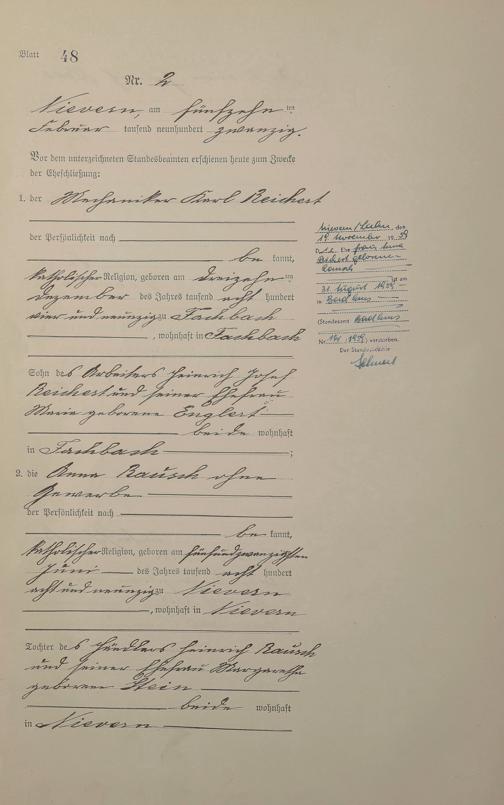 Blatt 48
Nr. 2
Nievern, am fünfzehn ten
Februar tausend neunhundert zwanzig.
Vor dem unterzeichneten Standesbeamten erschienen heute zum Zwecke
der Eheschließung:
1. der Mechaniker Karl Reichert
der Persönlichkeit nach
be kannt,
katholischer Religion, geboren am dreizehn ten
Dezember des Jahres tausend acht hundert
vier und neunzig zu Fachbach
, wohnhaft in Fachbach
Sohn des Arbeiters Heinrich Josef
Reichert und seiner Ehefrau
Maria geborene Englert
beide wohnhaft
in Fachbach ;
2. die Anna Rausch ohne
Gewerbe
der Persönlichkeit nach
be kannt,
katholischer Religion, geboren am fünfundzwanzigsten
Juni des Jahres tausend acht hundert
acht und neunzig zu Nievern
, wohnhaft in Nievern
Tochter des Händlers Heinrich Rausch
und seiner Ehefrau Margaretha
geborene Stein
beide wohnhaft
in Nievern
Nievern/Lahn, den
19. November 1959
Die Frau Anna
Reichert geborene
Rausch
ist am
31. August 1959
in Bad Ems
(Standesamt Bad Ems
Nr. /1959) verstorben.
Der Standesbeamte